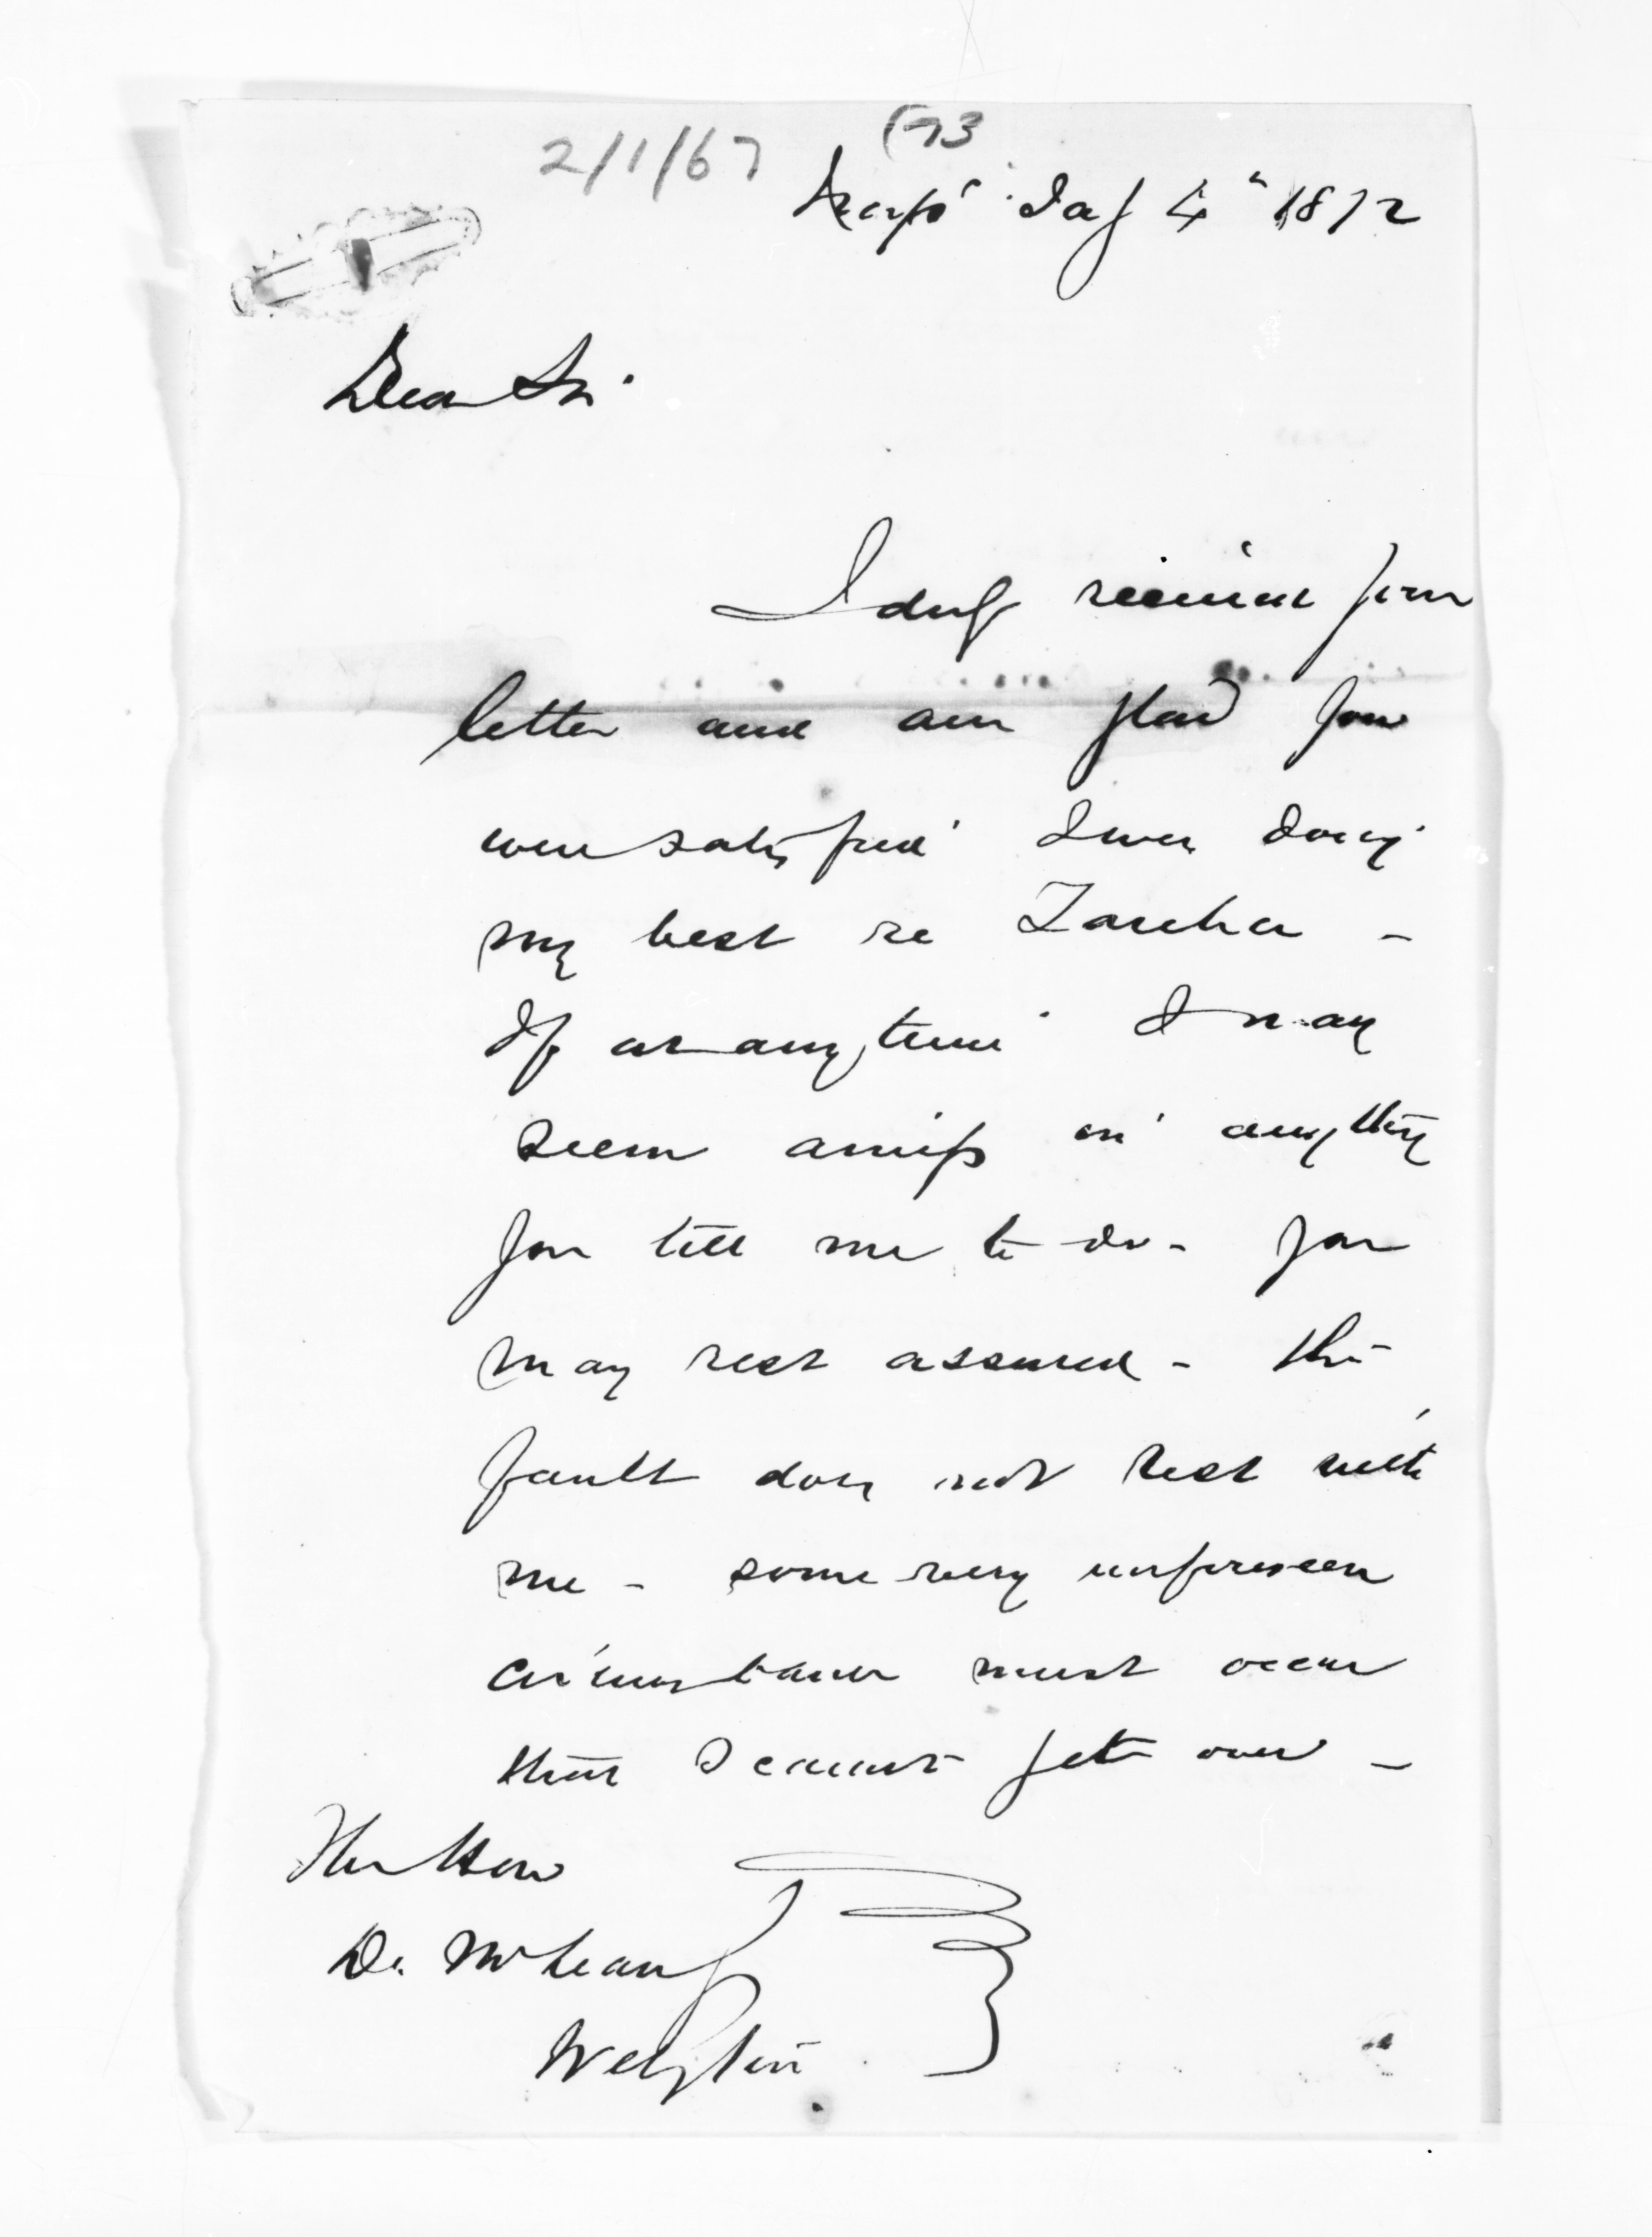 2/1/67
(73
Jay 4" 1872
Dear Sir.
I duly received your
letter and am glad you
were satisfied I was doing
my best re
If at any time I may
seem amiss in any thing
you tell me to do - you
may rest assured - the
fault does not rest with
me - some very unforeseen
circumstance must occur
that I cannot get over -
The Hon
D. McLean
Welgtn